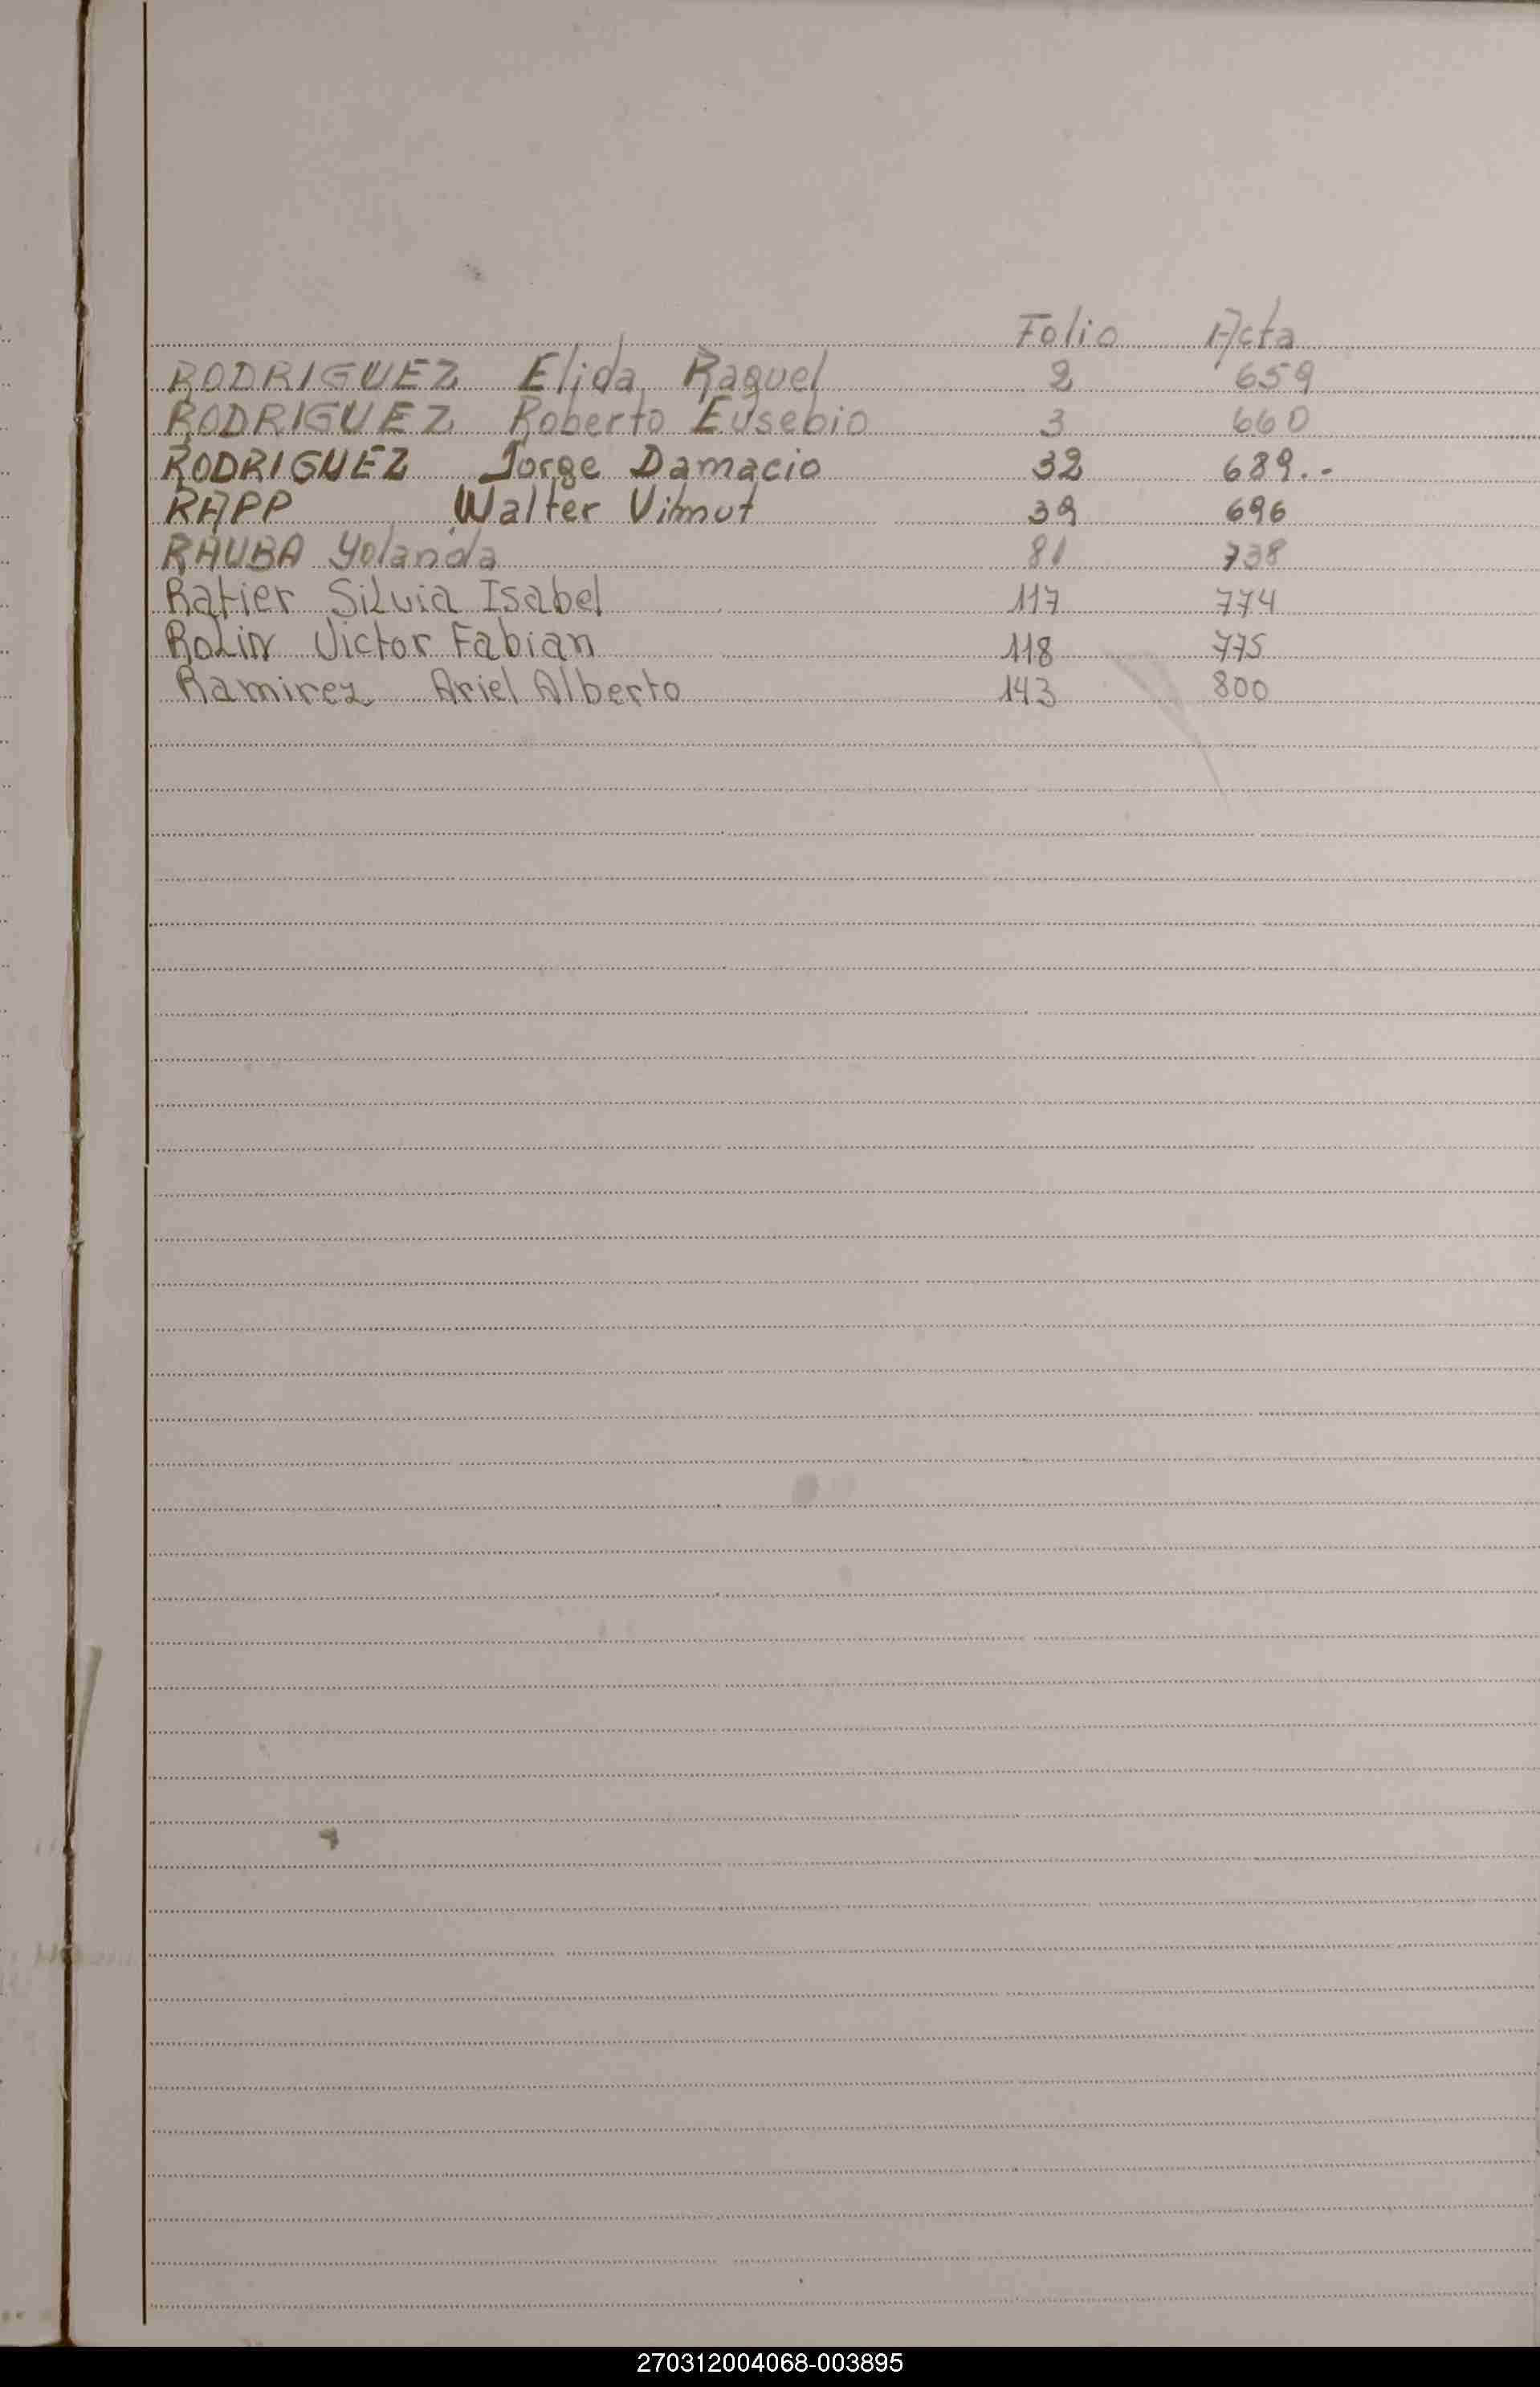 Folio Acta
RODRIGUEZ Elida Raquel 2 659
RODRIGUEZ Roberto Eusebio 3 660
RODRIGUEZ Jorge Damacio 32 689.-
RAPP Walter Vilmut 39 696
RAUBA Yolanda 81 738
Ratier Silvia Isabel 117 774
Rolin Victor Fabian 118 775
Ramirez Ariel Alberto 143 800
270312004068-003895